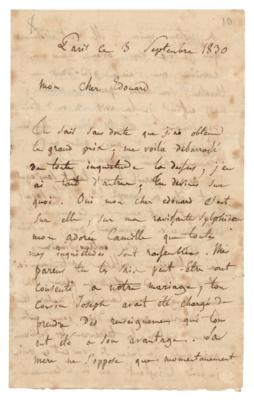 10
Paris ce 3 Septembre 1830
mon cher Edouard
Tu sais sans doute que j'ai obtenu
le grand prix; me voila débarassé
de toute inquietude la dessus; j'en
ai tant d'autres; tu devines sur
quoi. Oui mon cher edouard c'est
sur elle, sur ma ravissante sylphide
mon adorée Camille que toutes
mes inquiétudes sont
parens tu le sais peut être ont
consenti a notre mariage; ton
cousin Joseph avait été chargé de
prendre des renseignemens qui
ont été a son avantage. Sa
mère ne s'oppose que momentanement